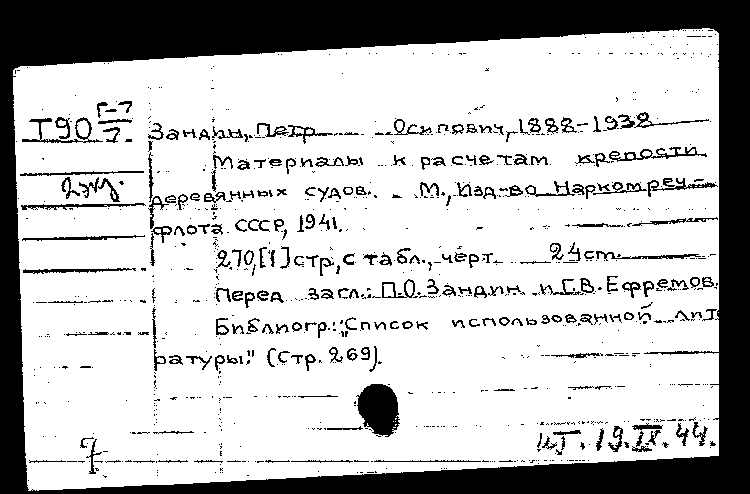 Т90 Г-7/7
Зандин, Петр Осипович, 1888-1938
Материалы к расчетам крепости
2 экз.
деревянных судов. - М., Изд-во Наркомреч-
флота СССР, 1941.
270, [1] стр., с табл., черт. 24 cm.
Перед загл.: П.О. Зандин и Г.В. Ефремов.
Библиогр.: "Список использованной лит
ратуры" (Стр. 269).
7
19.IX.44.